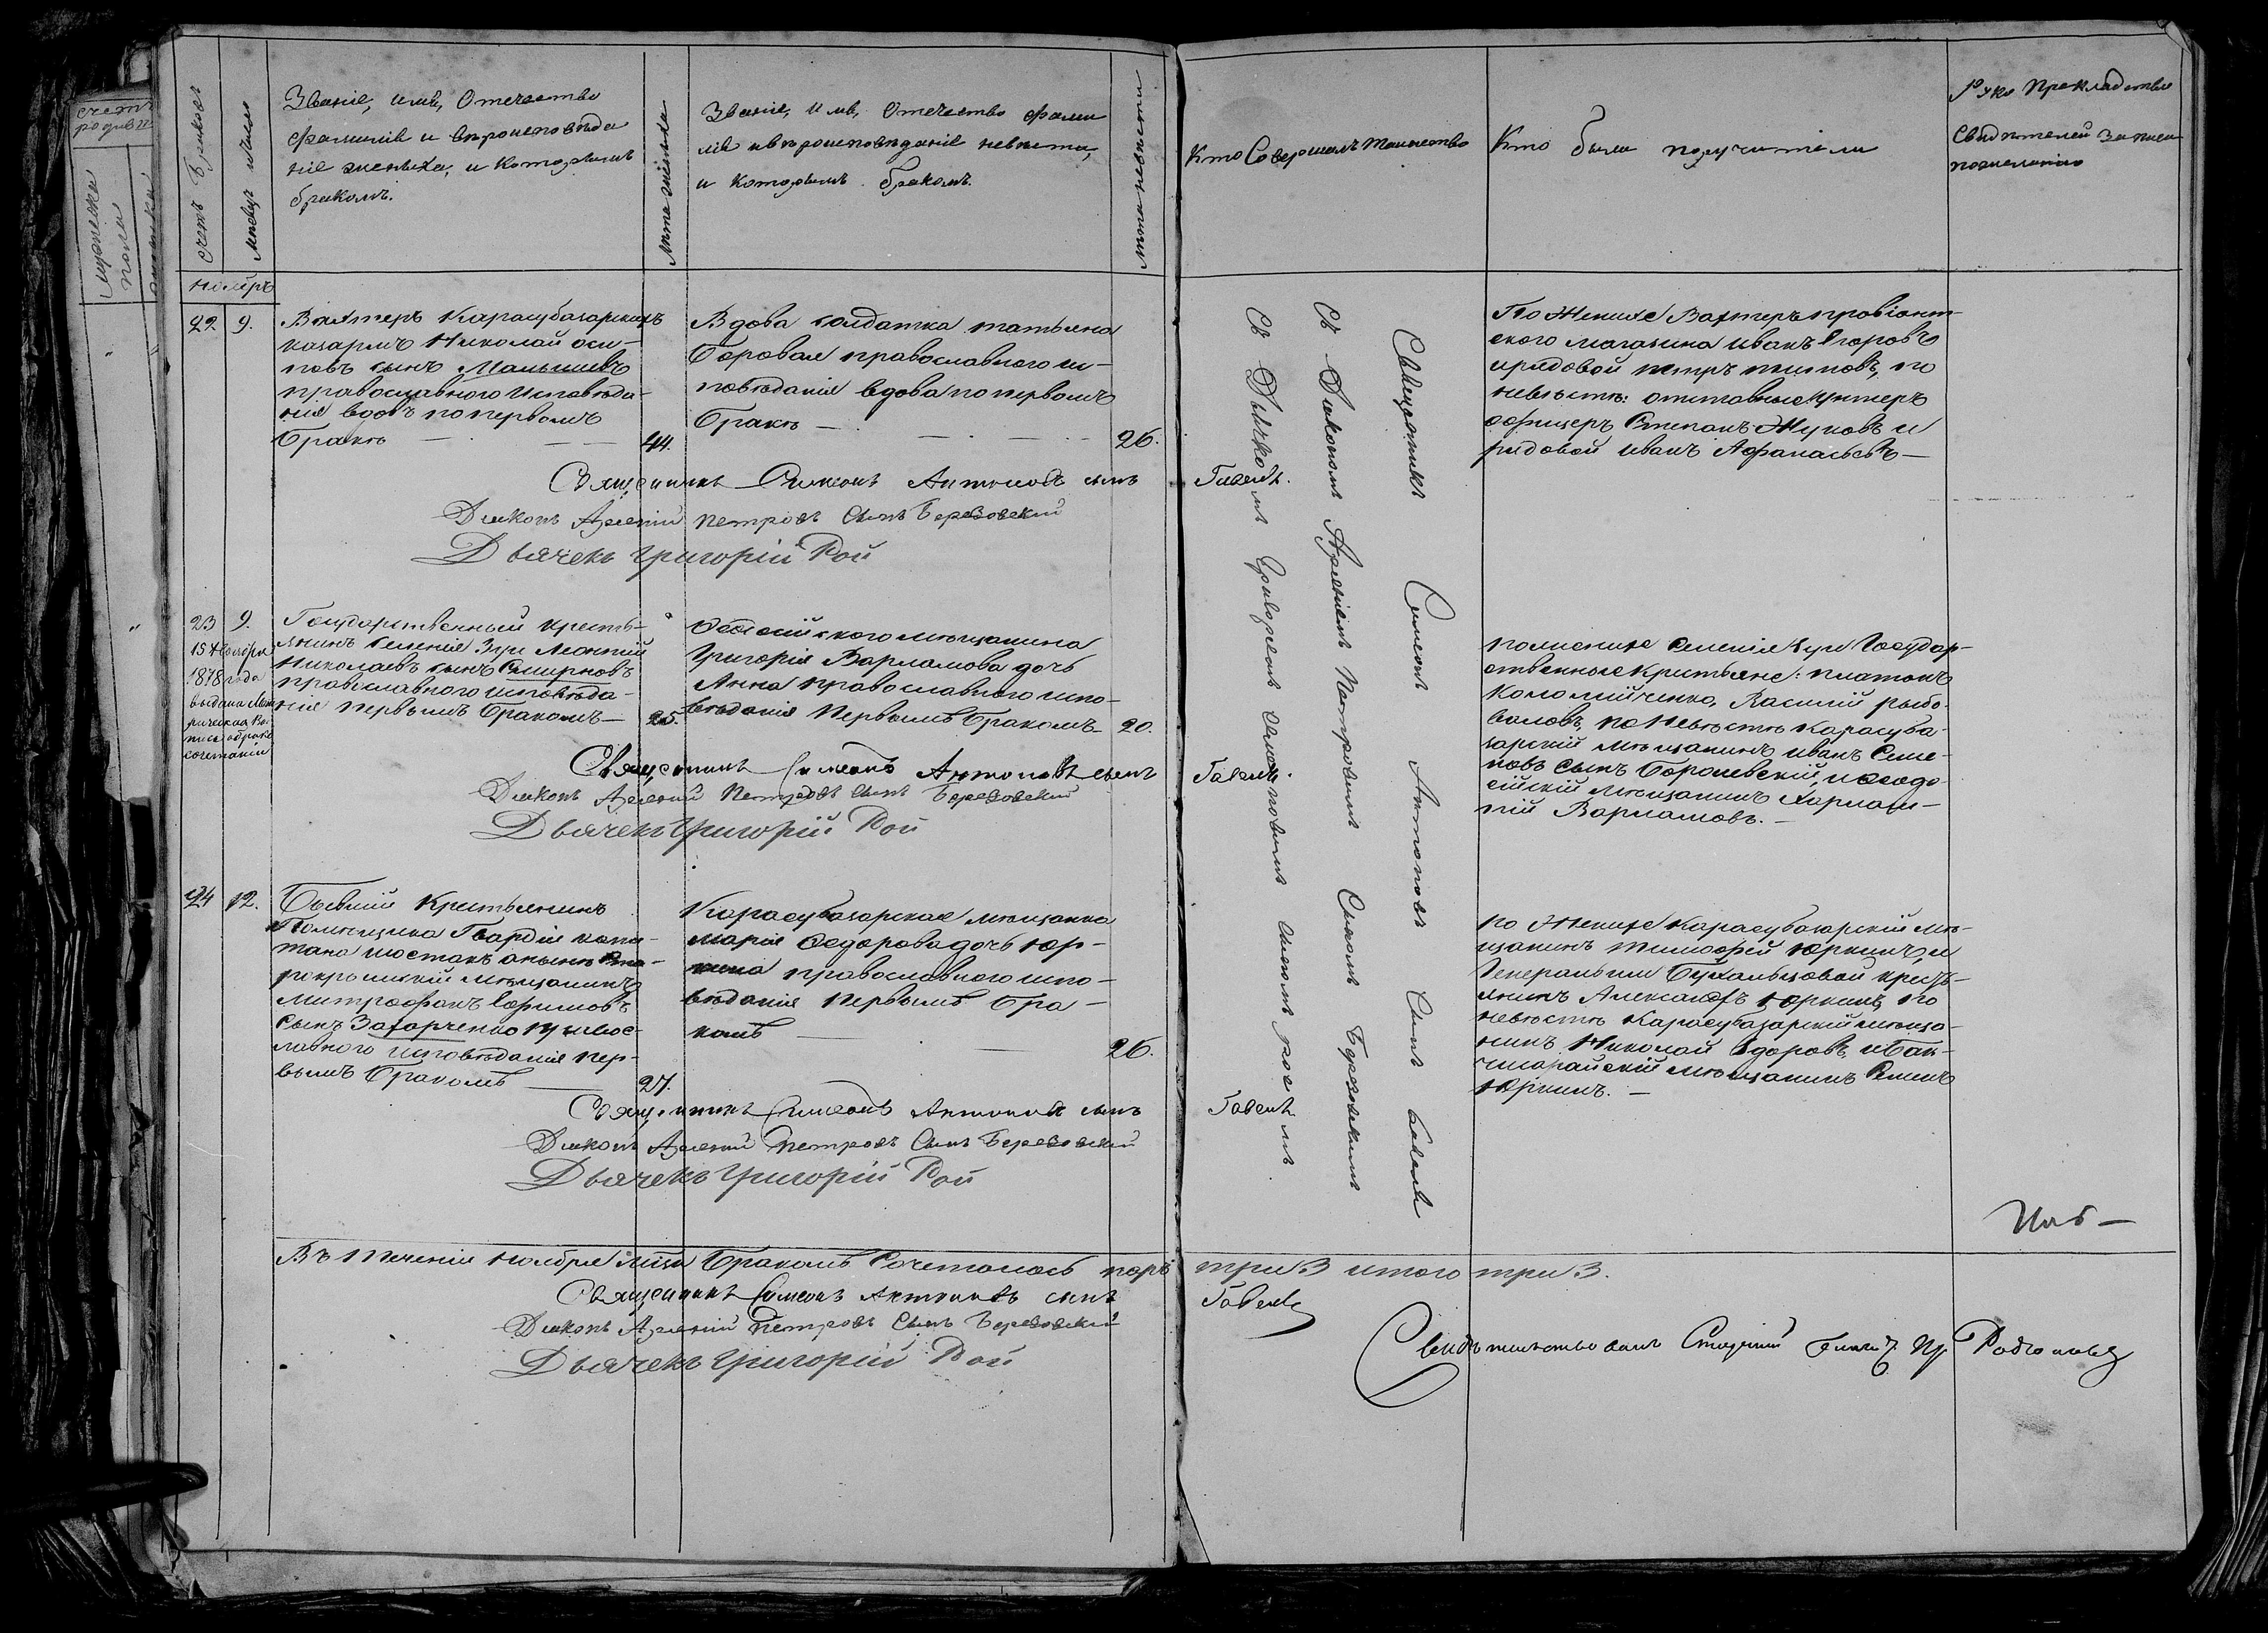 счетъ
родивш
мужеска
пола
счетъ браковъ
Мѣсяцъ и число
Званіе, имя, Отечество
фамилія и вѣроисповѣда
ніе жениха, и которымъ
бракомъ.
Лѣта жениха
Званіе, Имя, Отечество фами
лія и вѣроисповѣданіе невѣсты,
и которымъ бракомъ.
Лѣта невѣсты
Кто Совершалъ Таинство
Кто были поручители
Рукоприкладство
Свидѣтелей записи
по желанію
ноябрь
22. 9.
Вахтеръ Карасубазарскихъ
казармъ Николай Оси-
повъ сынъ Малышевъ
православнаго Исповѣда-
нія вдовъ по первомъ
бракѣ — 44.
Вдова солдатка татьяна
Боровая православнаго ис-
повѣданія вдова по первомъ
бракѣ — 26.
По Женихѣ Вахтеръ провіант-
скаго магазина иванъ Егоровъ
и рядовой петръ типовъ, по
невѣстѣ: отставные Унтеръ
офицеръ Степанъ Жуковъ и
рядовой иванъ Афанасьевъ —
Священникъ Симеонъ Антоновъ сынъ Бабенъ.
Діаконъ Арсеній петровъ Сынъ Березовскій
Дьячекъ Григорій Рой
23 9.
15 Ноября
1878 года
выдана Мет
рическая Вы
пись о брако
сочетаніи
Государственный кресть-
янинъ селенія Зуи Леонтій
Николаевъ сынъ Смирновъ
православнаго исповѣда-
нія первымъ бракомъ — 25.
Ѳеодосійскаго мѣщанина
Григорія Варламова дочь
Анна православнаго испо-
вѣданія первымъ бракомъ 20.
по женихѣ Селенія Зуи Государ-
ственные крестьяне: платонъ
Коломійченко, Василій рыбо-
валовъ, по Невѣстѣ Карасуба-
зарскій мѣщанинъ иванъ Семе-
новъ Сынъ Боролевскій, и Ѳеодо-
сійскій мѣщанинъ Харлам-
пій Варламовъ. —
Священникъ Симеонъ Антоновъ сынъ Бабенъ.
Діаконъ Арсеній Петровъ сынъ Березовскій
Дьячекъ Григорій Рой
24 12.
Бывшій Крестьянинъ
Помѣщика Гвардіи капи-
тана шостакъ а нынѣ Ста-
рокрымскій мѣщанинъ
Митрофанъ Ефимовъ
Сынъ Захарченко правос-
лавного исповѣданія пер-
вымъ бракомъ — 27.
Карасубазарская мѣщанка
марія Ѳедорова дочь Юр-
кина православного испо-
вѣданія первымъ бра-
комъ — 26.
по Женихѣ Карасубазарскій мѣ-
щанинъ тимофей Юркинъ, и
Генеральши Бухальцовой крест-
янинъ Александръ Юркинъ, по
невѣстѣ Карасубазарскій мѣща-
нинъ Николай Ѳдоровъ, и Бах-
чисарайскій мѣщанинъ Семенъ
Юркинъ. —
Священникъ Симеонъ Антоновъ сынъ Бабенъ
Діаконъ Арсеній Петровъ Сынъ Березовскій
Дьячекъ Григорій Рой
Священникъ Симеонъ Антоновъ Сынъ Бабенъ
Съ Діакономъ Арсеніемъ Петровымъ Сыномъ Березовскимъ
Съ Дьячкомъ Григоріемъ сыномъ роемъ
Въ теченіи ноября мѣсца Бракомъ Сочеталось паръ три 3 итого три 3.
Священникъ Симеонъ Антоновъ сынъ Бабенъ
Діаконъ Арсеній Петровъ Сынъ Березовскій
Дьячекъ Григорій Рой
Свидѣтельствовалъ